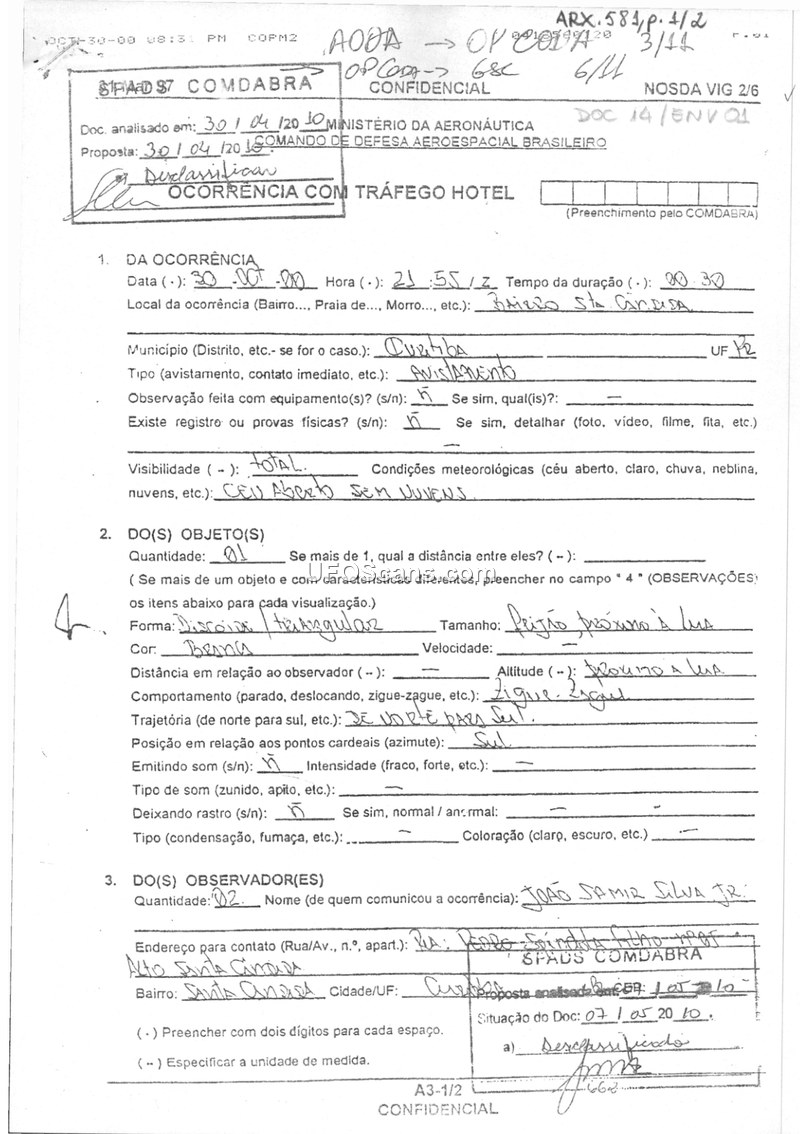 ARX. 581, p. 1/2
OCT-30-00 08:31 PM COPM2 P.01
AODA → OPCODA 3/11
OPCODA → GSC 6/11
SPADS COMDABRA
CONFIDENCIAL
NOSDA VIG 2/6
DOC 14/ENV 01
Doc. analisado em: 30 / 04 /2010
MINISTÉRIO DA AERONÁUTICA
Proposta: 30 / 04 /2010.
COMANDO DE DEFESA AEROESPACIAL BRASILEIRO
Desclassificar
OCORRÊNCIA COM TRÁFEGO HOTEL
(Preenchimento pelo COMDABRA)
1. DA OCORRÊNCIA
Data ( - ): 30 -OCT -00 Hora ( - ): 21 :55 / Z Tempo da duração ( - ): 00 30
Local da ocorrência (Bairro..., Praia de..., Morro..., etc.): BAIRRO Sta CÂNDIDA
Município (Distrito, etc.- se for o caso.): CURITIBA UF PR
Tipo (avistamento, contato imediato, etc.): AVISTAMENTO
Observação feita com equipamento(s)? (s/n): Ñ Se sim, qual(is)?: —
Existe registro ou provas físicas? (s/n): Ñ Se sim, detalhar (foto, vídeo, filme, fita, etc.)
—
Visibilidade ( -- ): TOTAL. Condições meteorológicas (céu aberto, claro, chuva, neblina,
nuvens, etc.): CÉU ABERTO SEM NUVENS.
2. DO(S) OBJETO(S)
Quantidade: 01 Se mais de 1, qual a distância entre eles? ( -- ):
( Se mais de um objeto e com características diferentes, preencher no campo " 4 " (OBSERVAÇÕES)
UFOScans.com
os itens abaixo para cada visualização.)
Forma: DISCÓIDE / TRIANGULAR Tamanho: FEIJÃO, PRÓXIMO À LUA
Cor: BRANCA Velocidade: —
Distância em relação ao observador ( -- ): — Altitude ( -- ): PRÓXIMO A LUA
Comportamento (parado, deslocando, zigue-zague, etc.): Zigue-Zague
Trajetória (de norte para sul, etc.): DE NORTE PARA SUL.
Posição em relação aos pontos cardeais (azimute): SUL
Emitindo som (s/n): Ñ Intensidade (fraco, forte, etc.): —
Tipo de som (zunido, apito, etc.): —
Deixando rastro (s/n): Ñ Se sim, normal / anormal: —
Tipo (condensação, fumaça, etc.): — Coloração (claro, escuro, etc.) —
3. DO(S) OBSERVADOR(ES)
Quantidade: 02. Nome (de quem comunicou a ocorrência): JOÃO SAMIR SILVA JR.
Endereço para contato (Rua/Av., n.º, apart.): RUA: PEDRO
ALTO SANTA CÂNDIDA
SPADS COMDABRA
Bairro: SANTA CÂNDIDA Cidade/UF: Curitiba
Proposta analisada em: 07 / 05 20 10
( - ) Preencher com dois dígitos para cada espaço.
Situação do Doc: 07 / 05 20 10.
a) Desclassificado
( -- ) Especificar a unidade de medida.
A3-1/2
CONFIDENCIAL